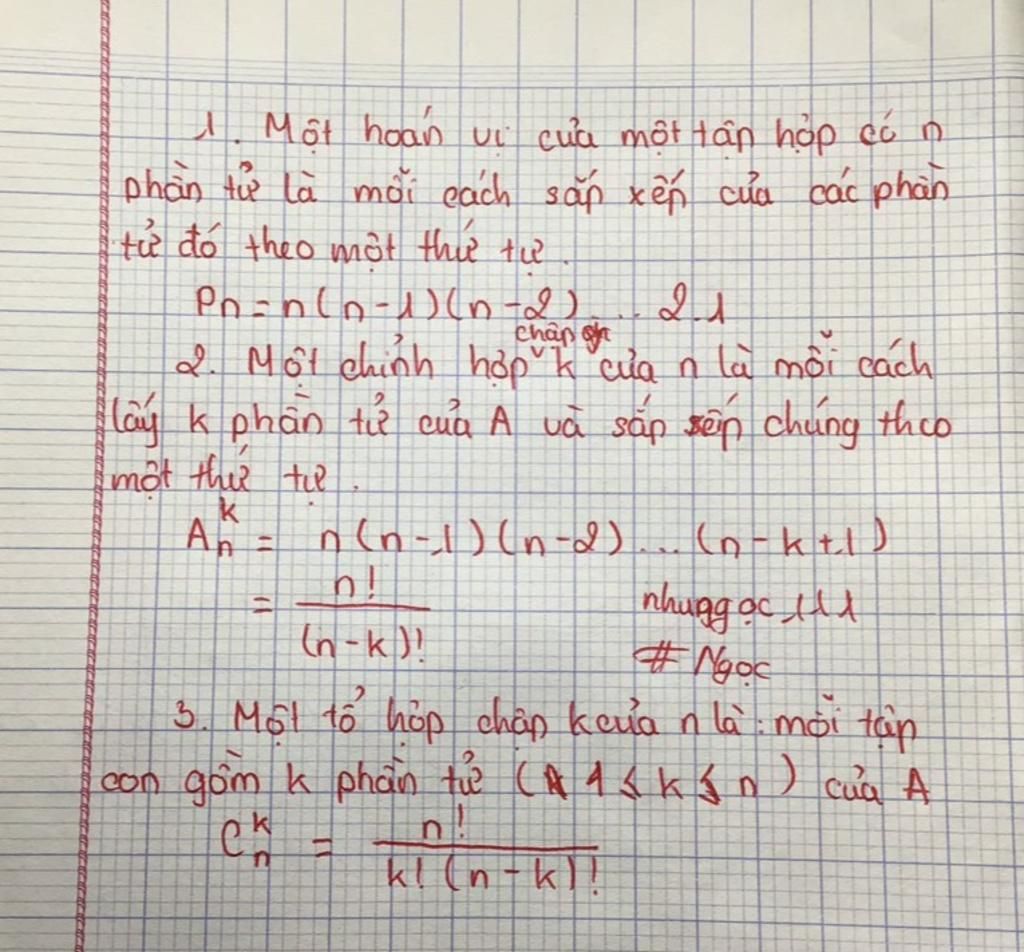 1. Một hoán vị của một tập hợp có n
phần tử là mỗi cách sắp xếp của các phần
tử đó theo một thứ tự.
Pn = n(n-1)(n-2)... 2.1
chập
2. Một chỉnh hợp ˇ k của n là mỗi cách
lấy k phần tử của A và sắp xếp chúng theo
một thứ tự.
A_n^k = n(n-1)(n-2)...(n-k+1)
= n!/(n-k)!
nhunggọc 111
# Ngọc
3. Một tổ hợp chập k của n là: mỗi tập
con gồm k phần tử (1 ≤ k ≤ n) của A
C_n^k = n!/k!(n-k)!